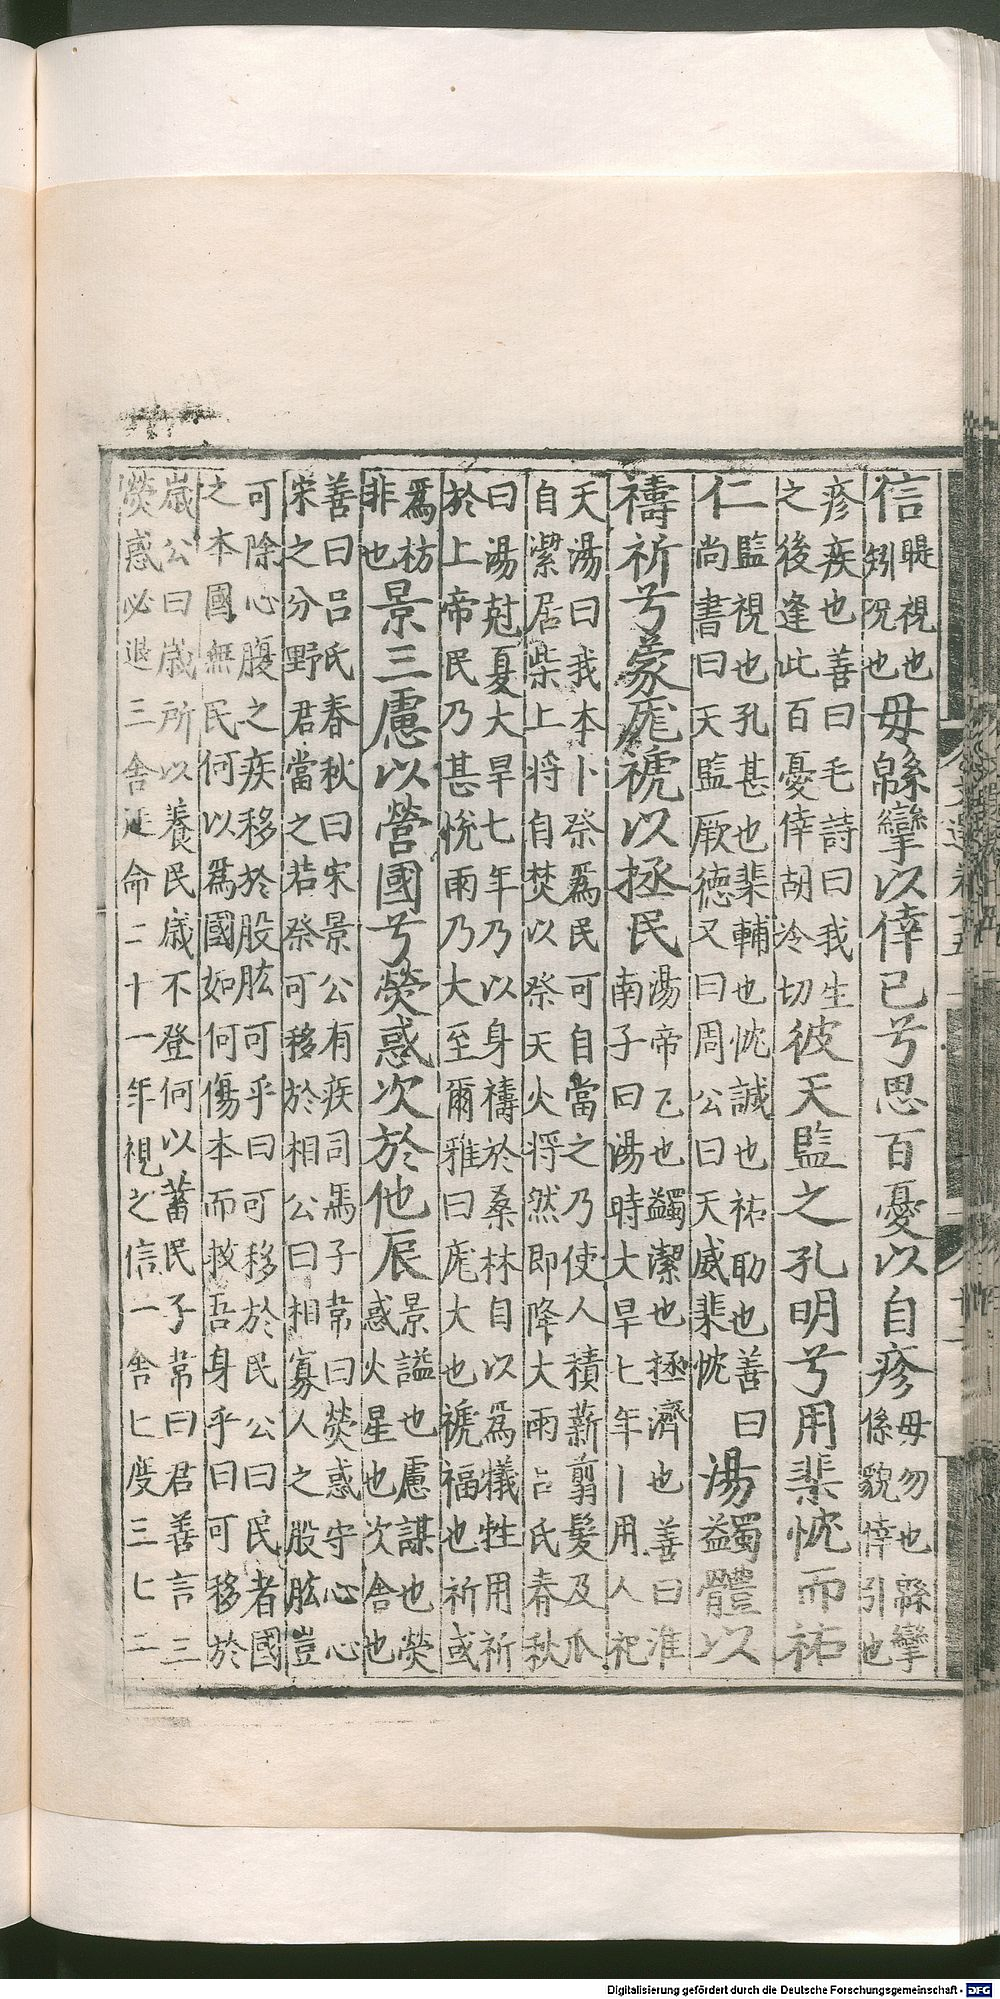 信睼視也矧況也毋緜攣以倖已兮思百憂以自疹毋勿也緜攣係貌倖引也
疹疾也善曰毛詩曰我生之後逢此百憂倖胡冷切彼天監之孔明兮用棐忱而祐
仁監視也孔甚也棐輔也忱誠也祐助也善曰尚書曰天監厥德又曰周公曰天威棐忱湯蠲體以
禱祈兮蒙厖禠以拯民湯帝乙也蠲潔也拯濟也善曰淮南子曰湯時大旱七年卜用人祀
天湯曰我本卜祭為民可自當之乃使人積薪翦髮及爪自潔居柴上將自焚以祭天火將然即降大雨呂氏春秋
曰湯尅夏大旱七年乃以身禱於桑林自以為犧牲用祈於上帝民乃甚悅雨乃大至爾雅曰厖大也禠福也祈或
為枋非也景三慮以營國兮熒惑次於他辰景謚也慮謀也熒惑火星也次舍也
善曰呂氏春秋曰宋景公有疾司馬子韋曰熒惑守心心宋之分野君當之若祭可移於相公曰相寡人之股肱豈
可除心腹之疾移於股肱可乎曰可移於民公曰民者國之本國無民何以為國如何傷本而救吾身乎曰可移於
歲公曰歲所以養民歲不登何以蓄民子韋曰君善言三熒惑必退三舍延命二十一年視之信一舍七度三七二
Digitalisierung gefördert durch die Deutsche Forschungsgemeinschaft - DFG